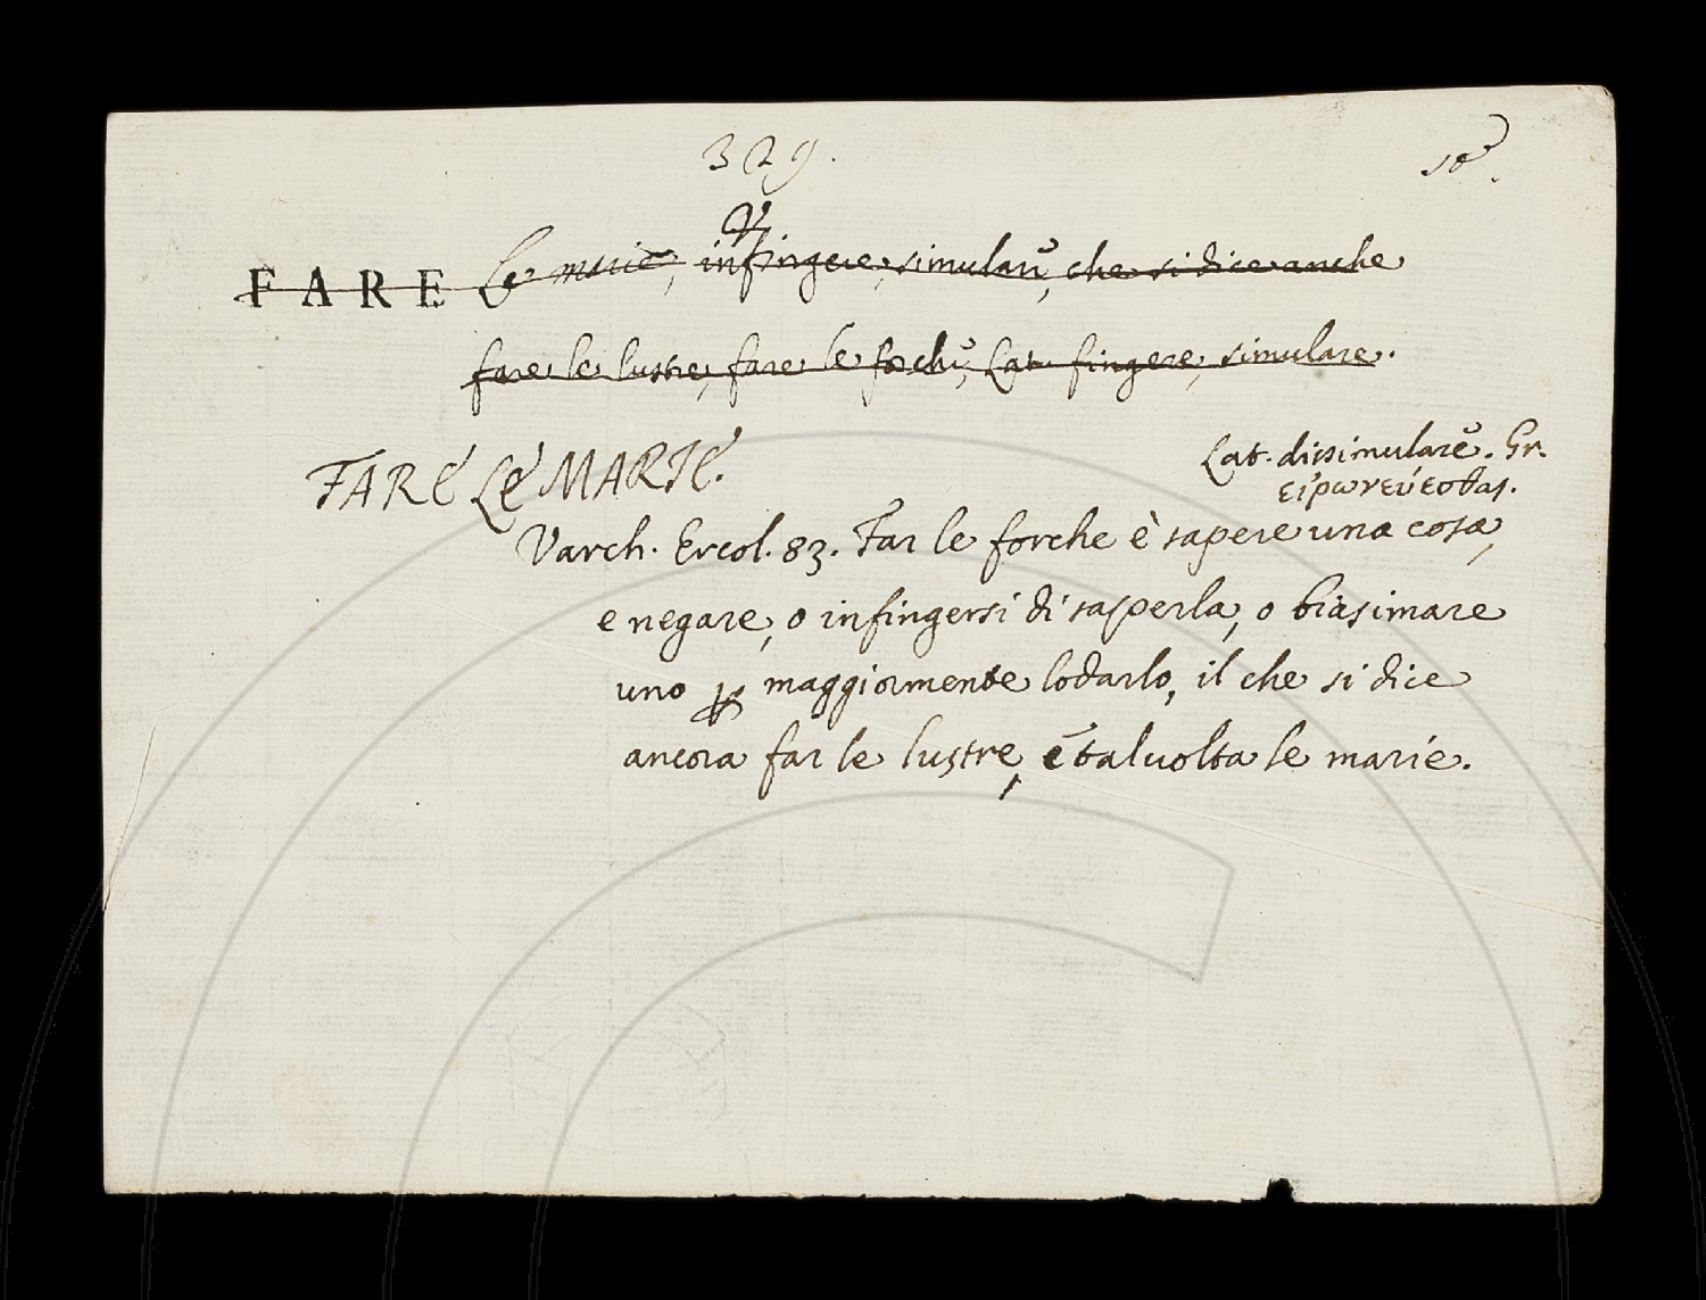 329.
FARE le marie, infingere, simulare, che si dice anche
fare le lustre, fare le forche, Lat. fingere, simulare.
FARE LE MARIE.
Lat. dissimulare. Gr.
εἰρωνεύεσθαι.
Varch. Ercol. 83. Far le forche è sapere una cosa,
e negare, o infingersi di saperla, o biasimare
uno ꝑ maggiormente lodarlo, il che si dice
ancora far le lustre, e talvolta le marie.